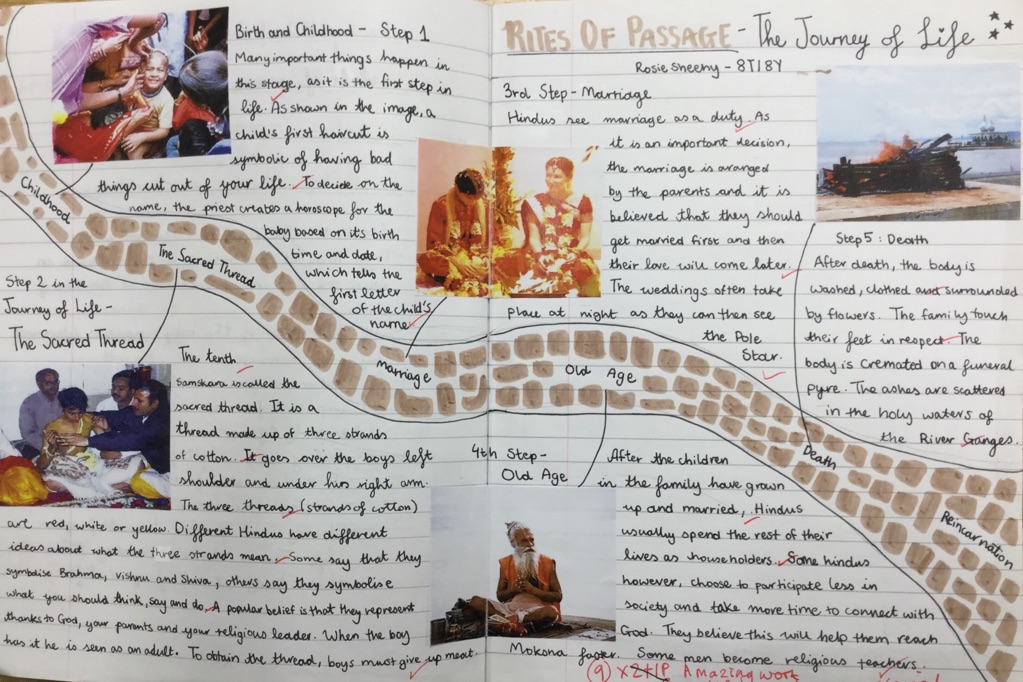 Birth and Childhood - Step 1
Many important things happen in
this stage, as it is the first step in
life. As shown in the image, a
child's first haircut is
symbolic of having bad
things cut out of your life. To decide on the
name, the priest creates a horoscope for the
baby based on it's birth
time and date,
which tells the
first letter
of the child's
name.
Childhood
The Sacred Thread
Step 2 in the
Journey of Life -
The Sacred Thread
The tenth
Samskara is called the
sacred thread. It is a
thread made up of three strands
of cotton. It goes over the boys left
shoulder and under his right arm.
The three threads (strands of cotton)
are red, white or yellow Different Hindus have different
ideas about what the three strands mean. Some say that they
symbolise Brahma, Vishnu and Shiva, others say they symbolise
what you should think, say and do. A popular belief is that they represent
thanks to God, your parents and your religious leader. When the boy
has it he is seen as an adult. To obtain the thread, boys must give up meat.
RITES OF PASSAGE - The Journey of Life
Rosie Sheeny - 8T18Y
3rd Step - Marriage
Hindus see marriage as a duty. As
it is an important decision,
the marriage is arranged
by the parents and it is
believed that they should
get married first and then
their love will come later.
The weddings often take
place at night as they can then see
the Pole
Star.
Marriage
Old Age
4th Step -
Old Age
After the children
in the family have grown
up and married, Hindus
usually spend the rest of their
lives as householders. Some hindus
however, choose to participate less in
society and take more time to connect with
God. They believe this will help them reach
Moksha faster. Some men become religious teachers.
Step 5 : Death
After death, the body is
washed, clothed and surrounded
by flowers. The family touch
their feet in respect. The
body is cremated on a funeral
pyre. The ashes are scattered
in the holy waters of
the River Ganges.
Death
Reincarnation
9 x2+1P Amazing work